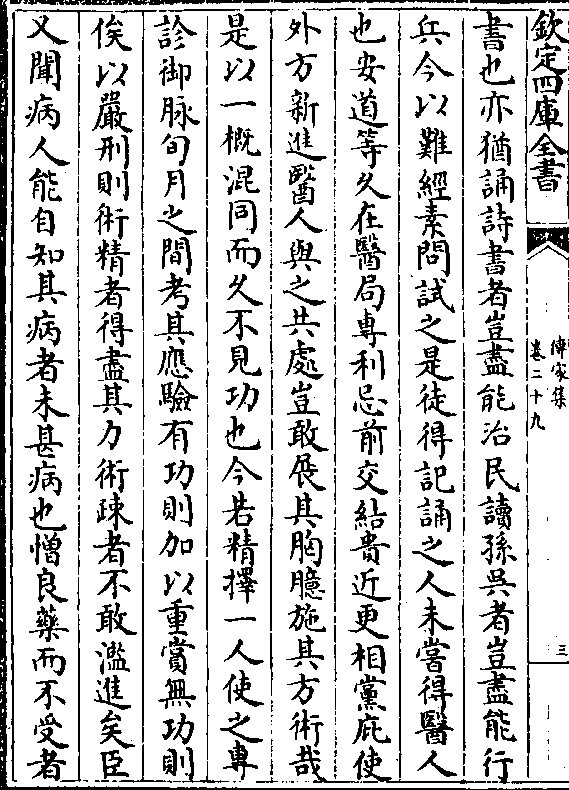 欽定四庫全書
傳家集
卷二十九
三
書也亦猶誦詩書者豈盡能治民讀孫吳者豈盡能行
兵今以難經素問試之是徒得記誦之人未嘗得醫人
也安道等久在醫局專利忌前交結貴近更相黨庇使
外方新進醫人與之共處豈敢展其胸臆施其方術哉
是以一概混同而久不見功也今若精擇一人使之專
診御脉旬月之間考其應驗有功則加以重賞無功則
俟以嚴刑則術精者得盡其力術疎者不敢濫進矣臣
又聞病人能自知其病者未甚病也憎良藥而不受者